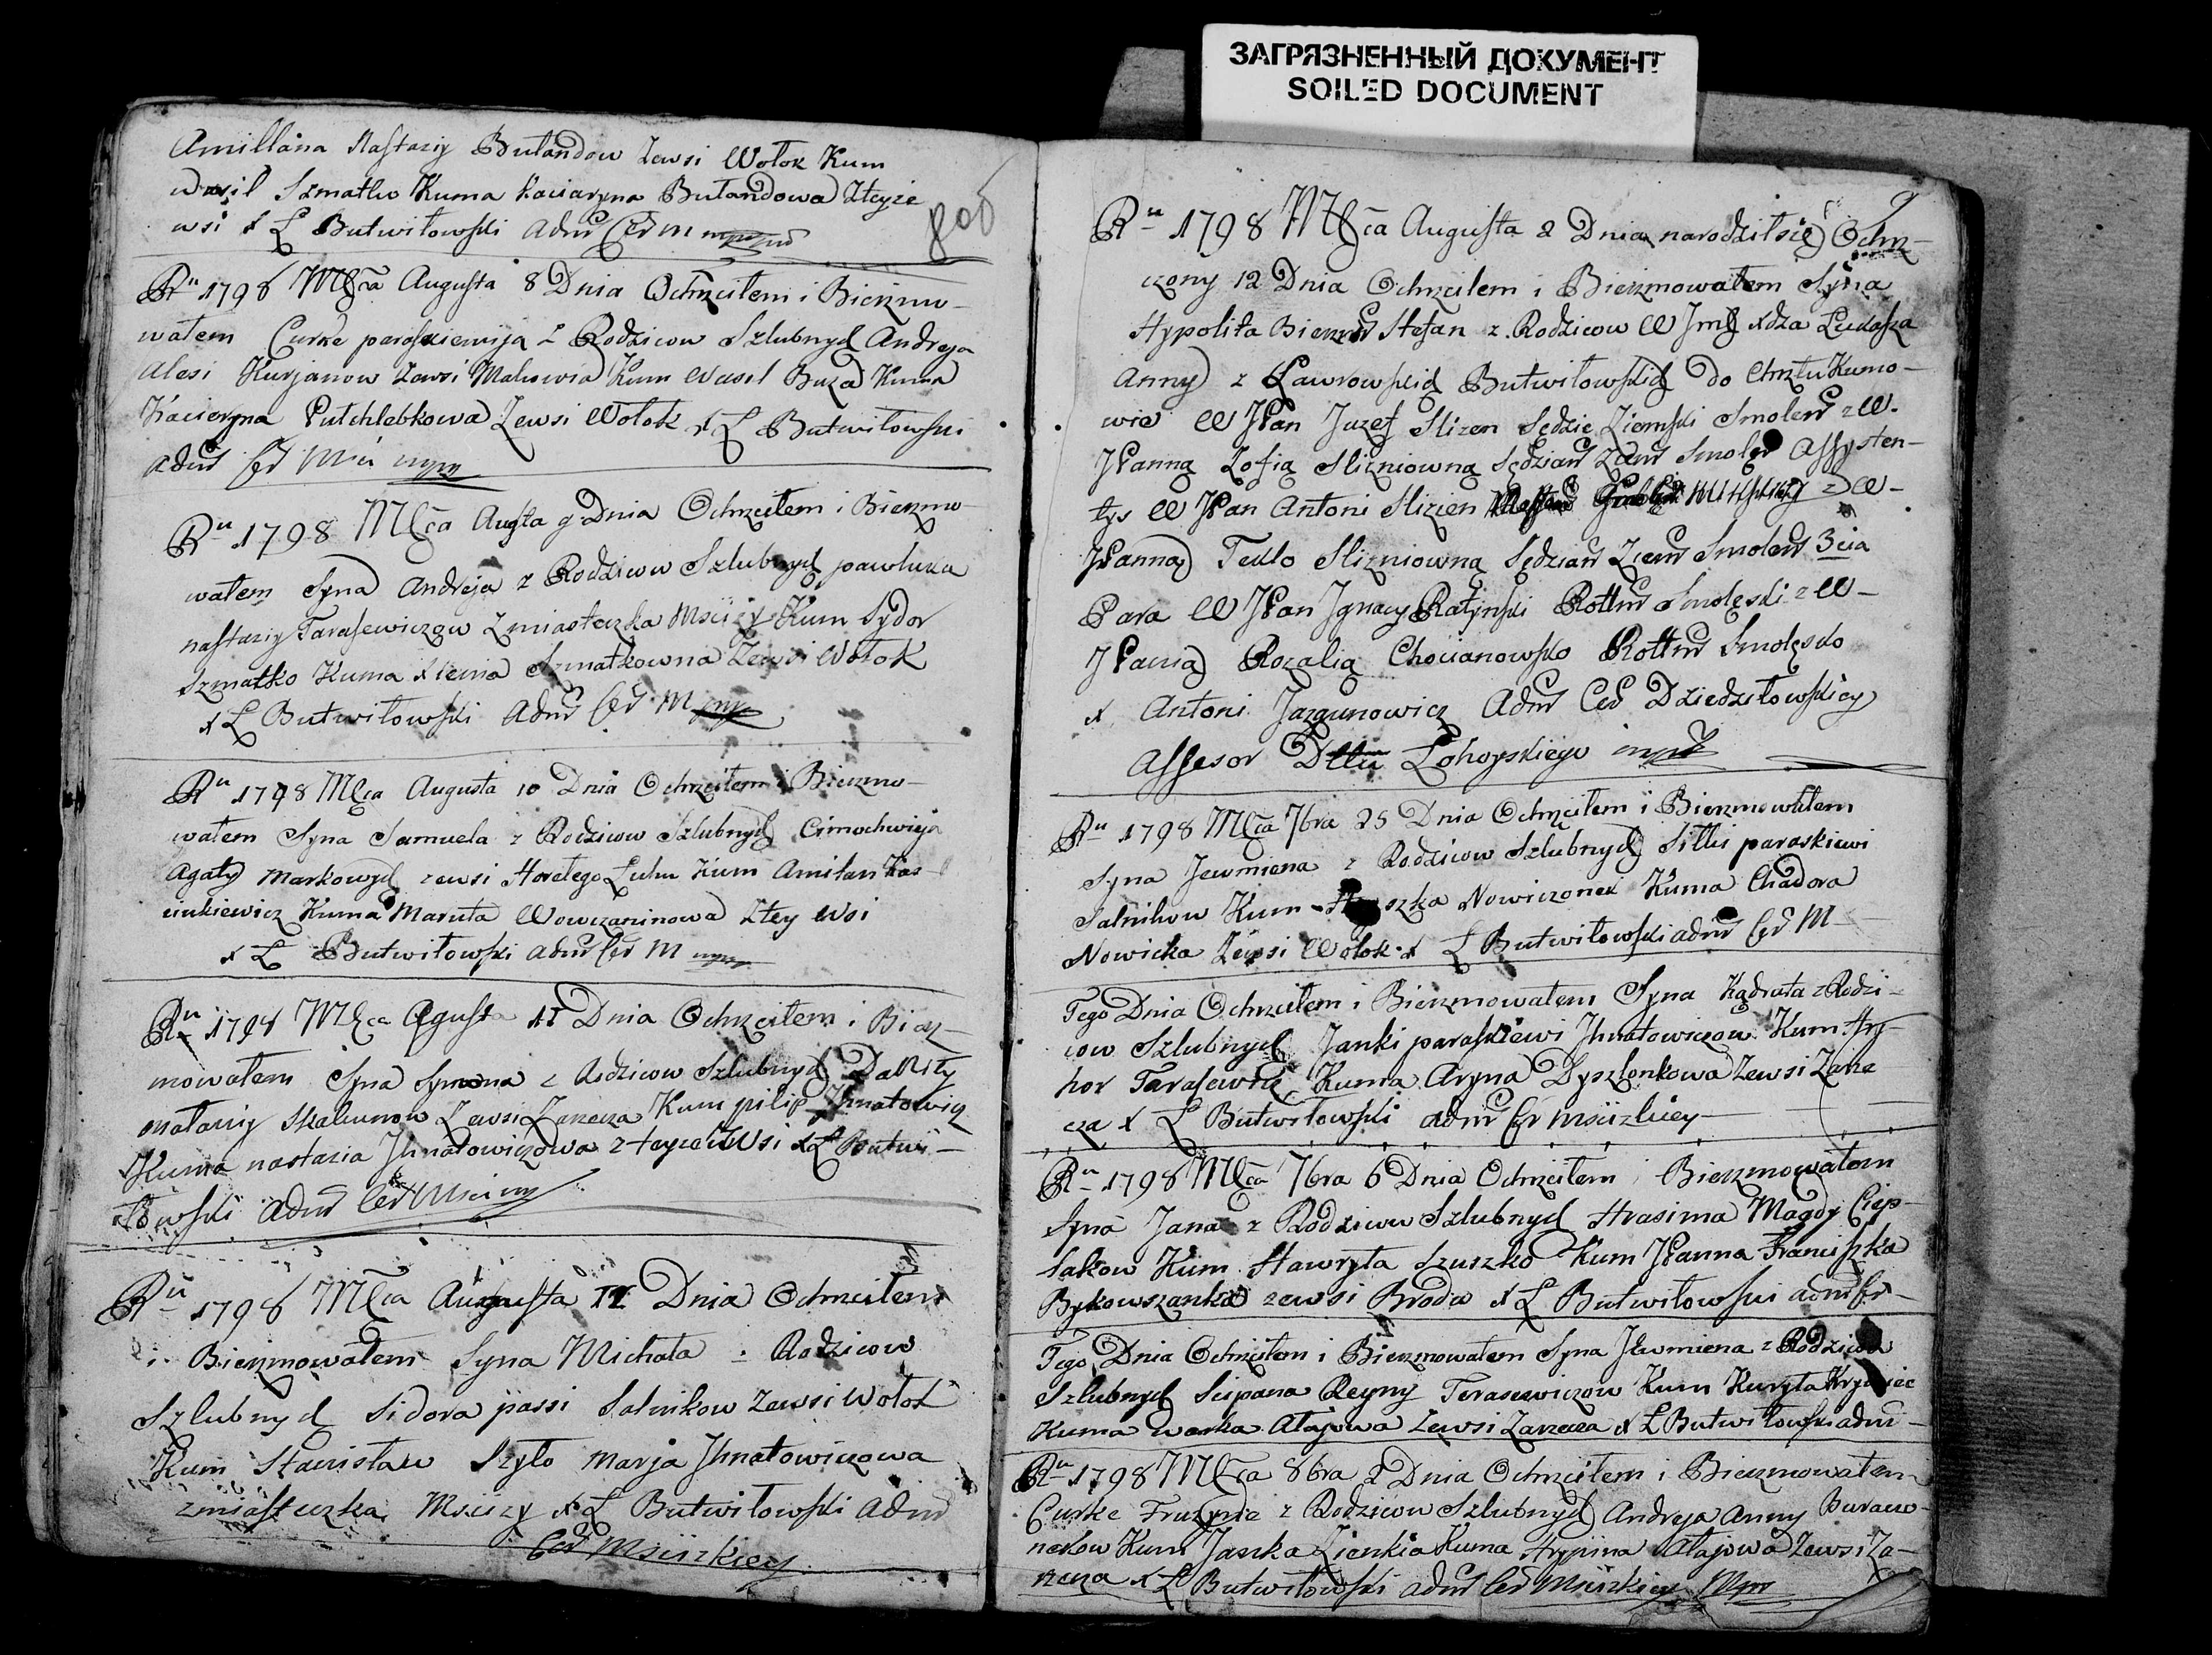 ЗАГРЯЗНЕННЫЙ ДОКУМЕНТ
SOILED DOCUMENT
Amillana Nastazij Butandow Zewsi Wołok Kum
Wasil Szmatko Kuma Kaciaryna Butandowa Zteyże
wsi X Ł Butwiłowski Adm Cer M mpp
806
Ru 1798 Mca Augusta 8 Dnia Ochrzciłem i Bierzmo-
wałem Curke paraskiewija z Rodzicow Szlubnych Andreja
Alesi Kurjanow Zewsi Mahowia Kum Wasil Buza Kuma
Kacieryna Putchlebkowa Zewsi Wołok X Ł Butwiłowski
Adm Cer Mści mpp
Ru 1798 Mca Augta 9 Dnia Ochrzciłem i Bierzmo-
wałem Syna Andreja z Rodzicow Szlubnych pawluka
nastazij Tarasewiczow Zmiasteczka Mściży Kum Sydor
Szmatko Kuma Xienia Szmatkowna Zewsi Wołok
X Ł Butwiłowski Adm Cer M mpp
Ru 1798 Mca Augusta 10 Dnia Ochrzciłem i Bierzmo-
wałem Syna Samuela z Rodzicow Szlubnych Cimochwieja
Agaty Markowych zewsi Horełego Luhu Kum Amilan Kas-
ciukiewicz Kuma Maruta Wowczaninowa Ztey Wsi
X Ł Butwiłowski Adm Cer M mpp
Ru 1798 Mca Agusta 11 Dnia Ochrzciłem i Bierz-
mowałem Syna Symona z Rodzicow Szlubnych Daniły
Natalij Skakunow Zewsi Zarecza Kum pilip Ihnatowicz
Kuma nastazia Ihnatowiczowa z teyże Wsi X Ł Butwi-
łowski Adm Cer Mści mpp
Ru 1798 Mca Augusta 11 Dnia Ochrzciłem
i Bierzmowałem Syna Michała z Rodzicow
Szlubnych Sidora passi Salnikow Zewsi Wołok
Kum Stanisław Szyło Marja Ihnatowiczowa
zmiasteczka Mściży X Ł Butwiłowski Adm
Cer Mściżkiey
9
Ru 1798 Mca Augusta 2 Dnia narodziłsie Ochrz-
czony 12 Dnia Ochrzciłem i Bierzmowałem Syna
Hypolita Bierzm Stefan z Rodzicow W Jmć Xdza Łukasza
Anny z Ławrowskich Butwiłowskich do Chrztu Kumo-
wie W JPan Juzef Slizen Sędzie Ziemski Smolen z W-
JPanną Zofią Slizniowną Sędzian Ziem Smolen Assysten-
tys W JPan Antoni Slizien z W-
JPanną Teklo Slizniowną Sędzian Ziem Smolen 3cia
Para W JPan Jgnacy Ratynski Rottm Smolęski z W-
JPanią Rozalią Chocianowsko Rottm Smolęsko
X Antoni Jazgunowicz Adm Cer Dziedziłowskiey
Assesor Dttu Łohoyskiego mpp
Ru 1798 Mca 7bra 25 Dnia Ochrzciłem i Bierzmowałem
Syna Jewmiena z Rodzicow Szlubnych Silki paraskiewi
Salnikow Kum Nowiczonek Kuma Chadora
Nowicka Zewsi Wołok X Ł Butwiłowski adm Cer M
Tego Dnia Ochrzciłem i Bierzmowałem Syna Kądrata z Rodzi-
cow Szlubnych Janki paraskiewi Ihnatowiczow Kum Hry-
hor Tarasewicz Kuma Aryna Dyszlonkowa Zewsi Zarze
cza X Ł Butwiłowski adm Cer Mściżkiey
Ru 1798 Mca 7bra 6 Dnia Ochrzciłem i Bierzmowałem
Syna Jana z Rodzicow Szlubnych Hrasima Magdy Ciep-
lakow Kum Hawryła Szuszko Kum JPanna Franciszka
Bykowszanka zewsi Brodu X Ł Butwiłowski adm Cer
Tego Dnia Ochrzciłem i Bierzmowałem Syna Jewmiena z Rodzicow
Szlubnych Scipana Reyny Terasewiczow Kum Kuryła
Kuma Atajowa Zewsi Zarzecza X Ł Butwiłowski adm
Ru 1798 Mca 8bra 1 Dnia Ochrzciłem i Bierzmowałem
Curke Fruzynie z Rodzicow Szlubnych Andreja Anny Buraczo-
nekow Kum Jaska Zienkia Kuma Hrypina Atajowa Zewsi Za-
rzecza X Ł Butwiłowski adm Cer Mściżkiey Mpp